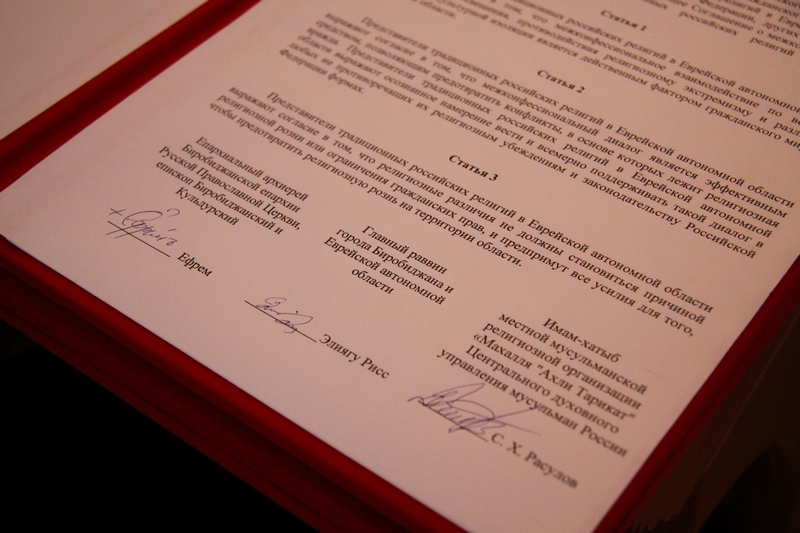 Статья 1
Представители традиционных российских религий в Еврейской автономной
выражают согласие в том, что межконфессиональное взаимодействие по
средством, противодействие религиозному экстремизму и
области.
Статья 2
Представители традиционных российских религий в Еврейской автономной области
выражают согласие в том, что межконфессиональный диалог является эффективным
средством, позволяющим предотвратить конфликты, в основе которых лежит религиозная
вражда. Представители традиционных российских религий в Еврейской автономной
области выражают осознанное намерение вести и всемерно поддерживать такой диалог в
любых не противоречащих их религиозным убеждениям и законодательству Российской
Федерации формах.
Статья 3
Представители традиционных российских религий в Еврейской автономной области
выражают согласие в том, что религиозные различия не должны становиться причиной
религиозной розни или ограничения гражданских прав, и предпримут все усилия для того,
чтобы предотвратить религиозную рознь на территории области.
Епархиальный архиерей
Биробиджанской епархии
Русской Православной Церкви,
епископ Биробиджанский и
Кульдурский
Ефрем
Главный раввин
города Биробиджана и
Еврейской автономной
области
Элиягу Рисс
Имам-хатыб
местной мусульманской
религиозной организации
«Махалля "Ахли Тарикат"
Центрального духовного
управления мусульман России
С. Х. Расулов